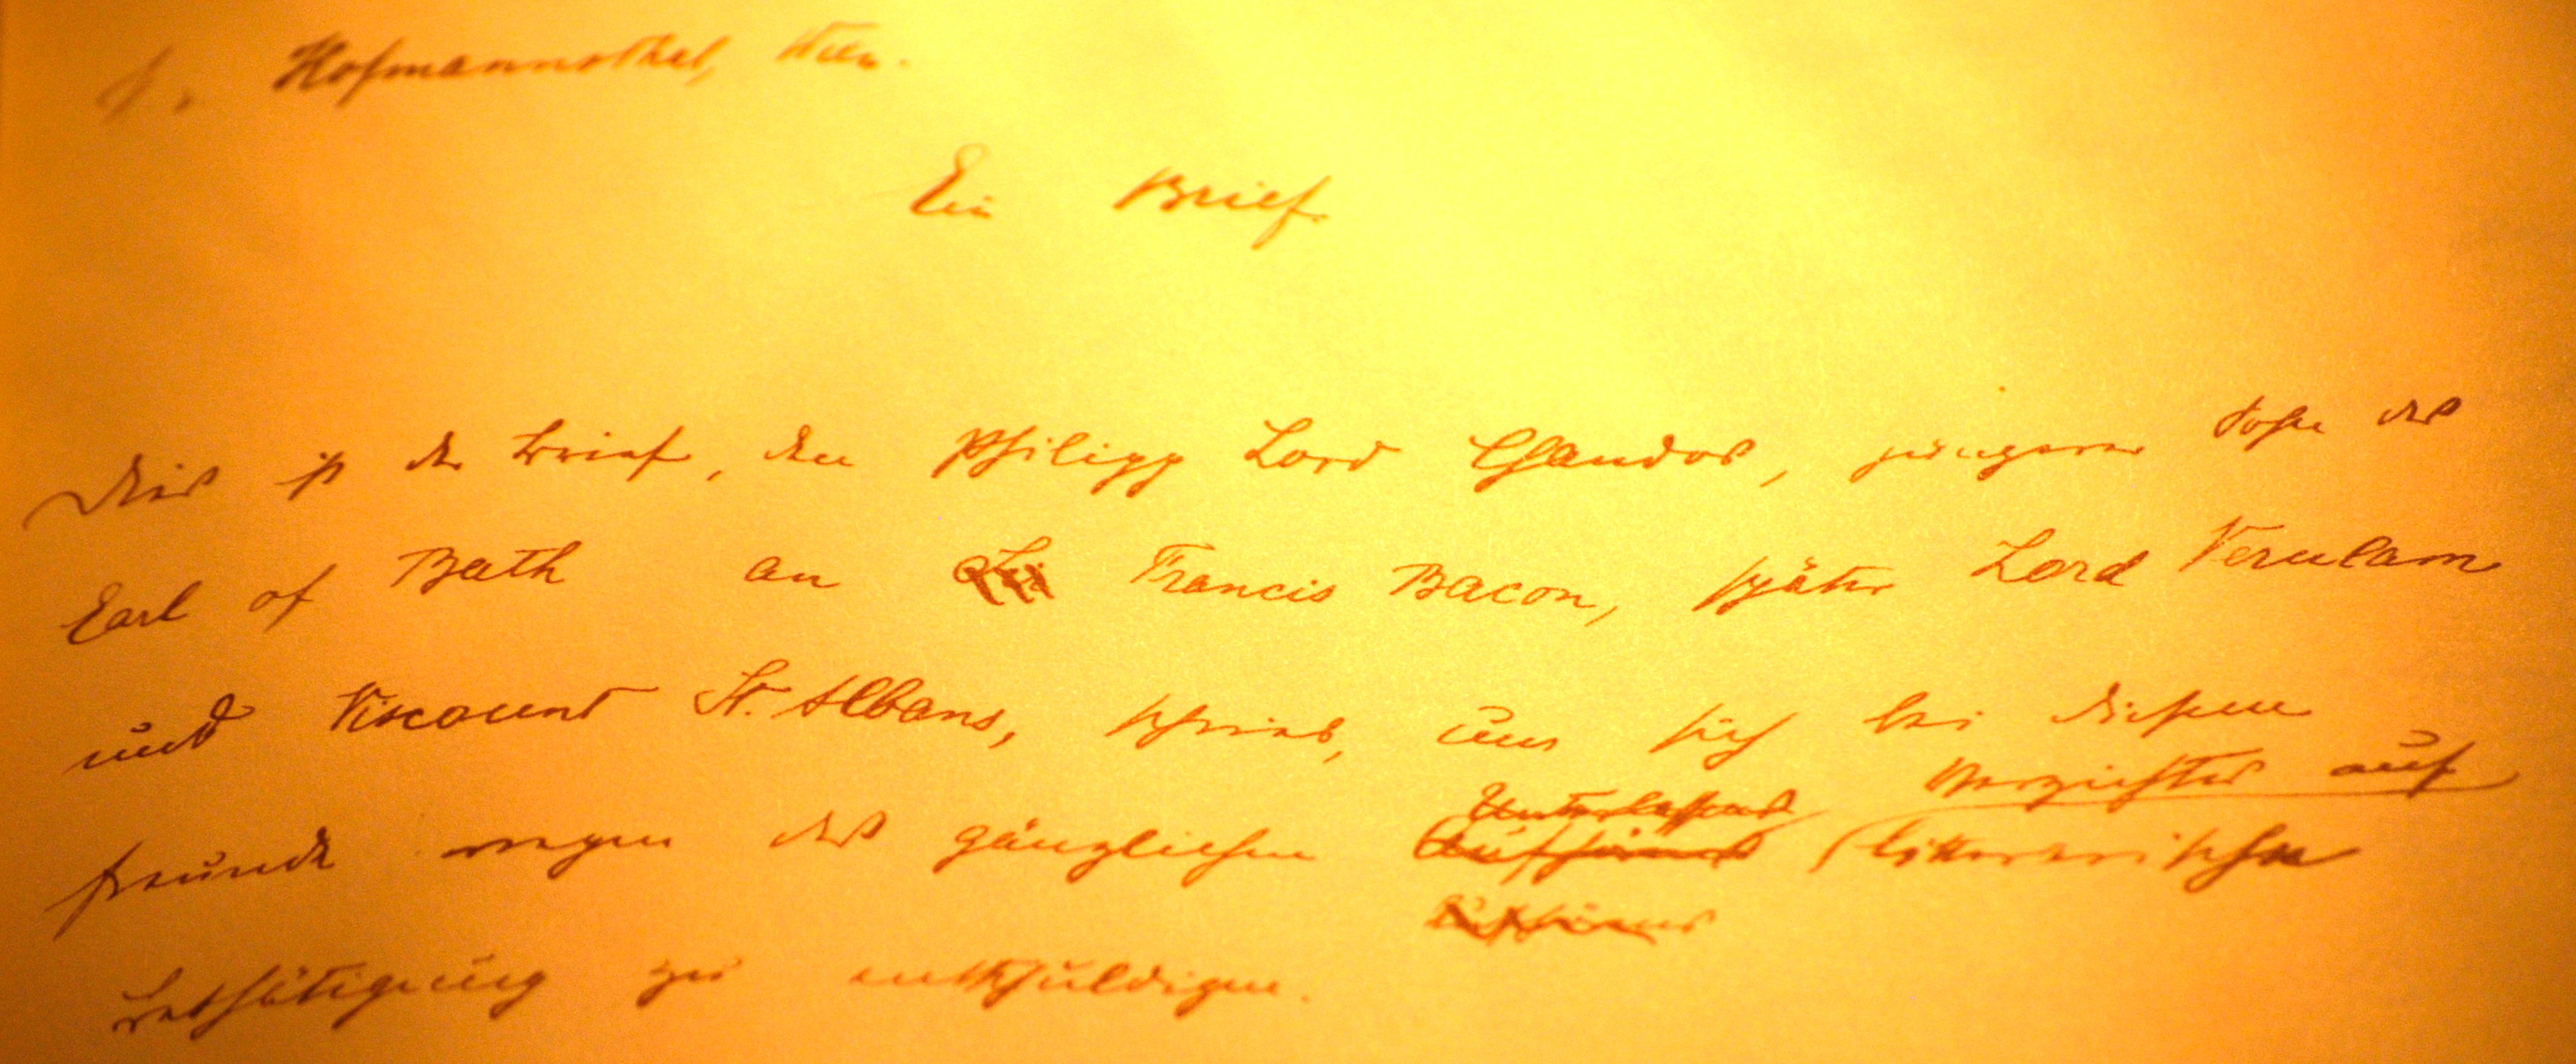 v. Hofmannsthal, Wien.
Ein Brief.
Dies ist der Brief, den Philipp Lord Chandos, jüngerer Sohn des
Earl of Bath an Francis Bacon, später Lord Verulam
und Viscount St. Albans, schrieb, um sich bei diesem
Unterlassens Verzichtes auf
Freunde wegen des gänzlichen Aufhörens litterarische
Aufhörens
Bethätigung zu entschuldigen.